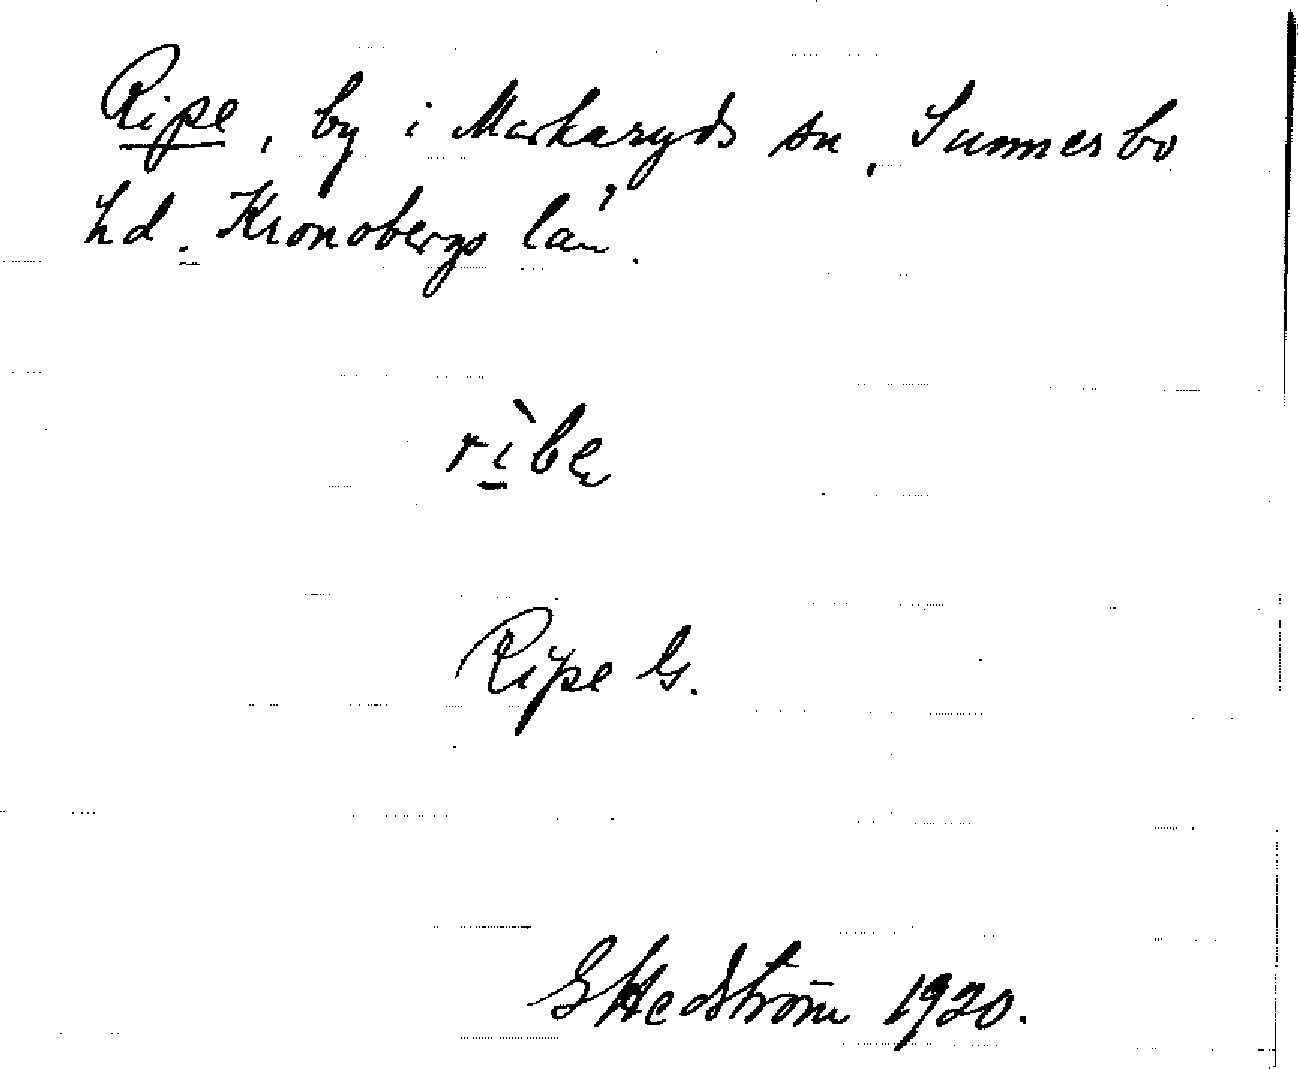 Ripe, by i Markaryds sn, Sunnerbo
hd. Kronobergs län.
rìbe
Ripe G.
G Hedström 1920.